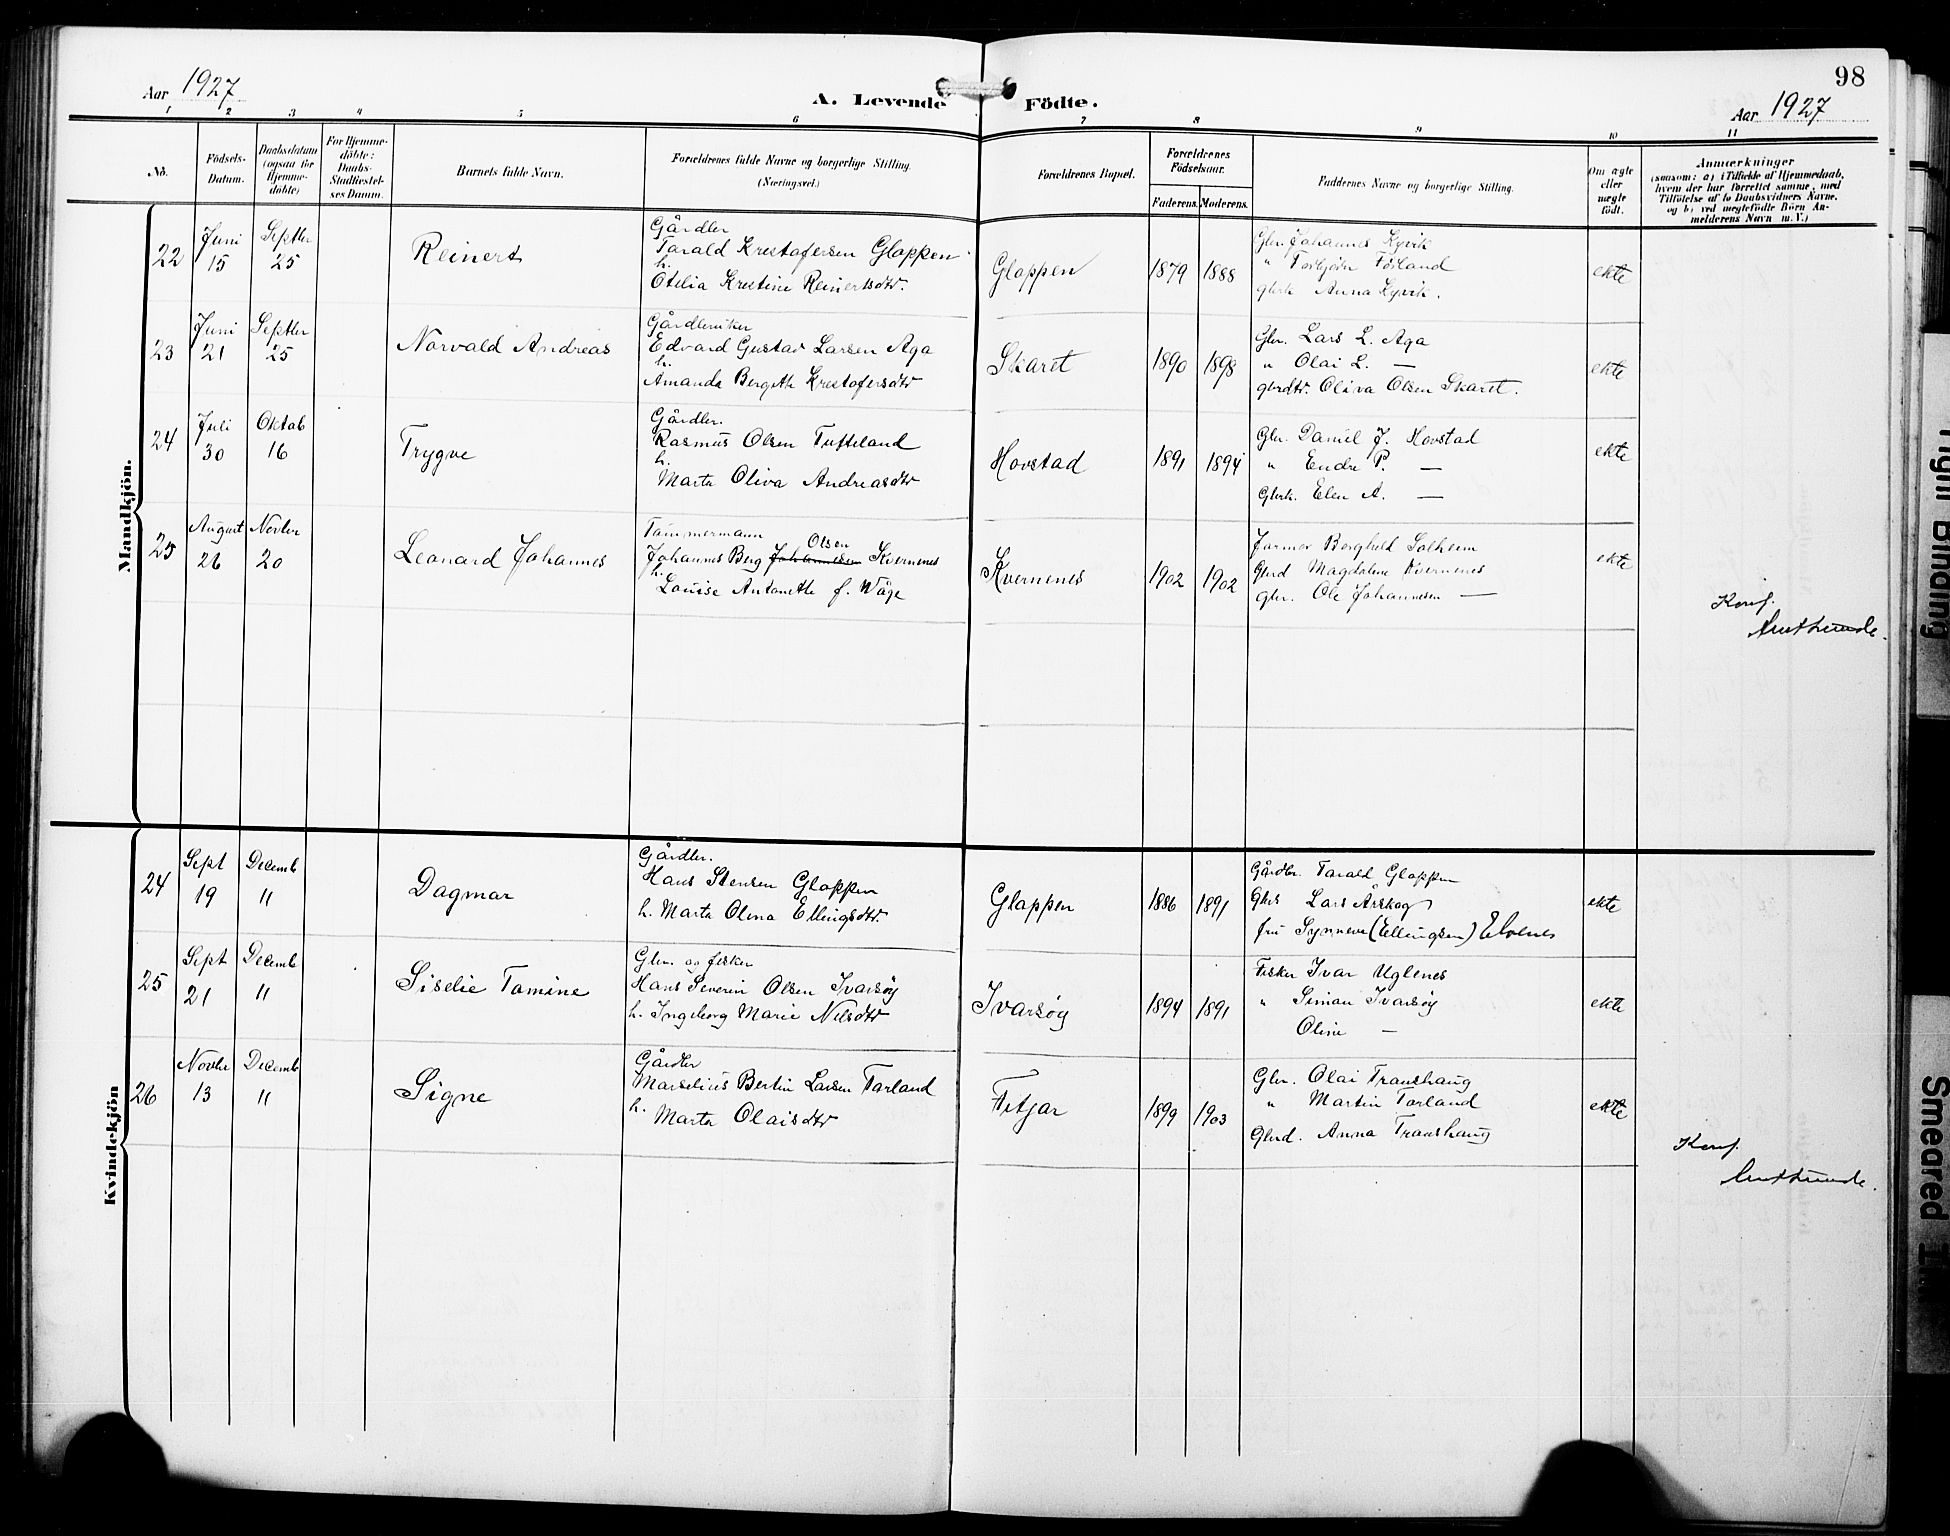 98
Aar 1927
A. Levende Födte.
Aar 1927
1 2 3 4 5 6 7 8 9 10 11
No.
Födsels-Datum.
Daabsdatum (ogsaa for Hjemme-döbte)
For Hjemme-döbte: Daabs-Stadfæstel-ses Datum.
Barnets fulde Navn.
Forældrenes fulde Navne og borgerlige Stilling.
(Næringsvei.)
Forældrenes Bopæl.
Forældrenes Födselsaar.
Faderens. Moderens.
Faddernes Navne og borgerlige Stilling.
Om ægte eller uægte födt.
Anmærkninger
(saasom: a) i Tilfælde af Hjemmedaab, hvem der har forrettet samme, med Tilföielse af to Daabsvidners Navne, og b) ved uegtefödte Börn An-melderens Navn m. V.)
Mandkjön.
22 Juni 15 Septbr 25 Reinert
Gårdbr
Tarald Kristofersen Gloppen
h.
Otelia Kristine Reinertsdtr.
Gloppen 1879 1888
Gbr. Johannes Kyvik
" Torbjörn Förland
gbrk Anna Kyvik.
ekte
23 Juni 21 Septbr 25 Norvald Andreas
Edvard Gustav Larsen Aga
h.
Amanda Bergitte Krestofersdtr
Skaret 1890 1898
Gbr. Lars L. Aga
" Olai L. —
gbrdtr. Oliva Olsen Skaret.
ekte
24 Juli 30 Oktob 16 Trygve
Gårdbr.
Rasmus Olsen Tufteland
h.
Marta Oliva Andreasdtr
Hovstad 1891 1894
Gbr. Daniel J. Hovstad
" Endre P. —
Gbrk. Elen A. —
ekte
25 August 26 Novbr 20 Leonard Johannes
Tömmermann
Olsen
Johannes Berg Johannessen Kvernenes
h.
Louise Antonette f. Våge
Kvernenes 1902 1902
Farmor Borghild Solheim
Gbrd Magdalene Kvernenes
gbr. Ole Johannesen —
ekte
Konf.
Kvindekjön
24 Sept 19 Decemb 11 Dagmar
Gårdbr.
Hans Stensen Gloppen
h. Marta Olena Ellingsdtr
Gloppen 1886 1891
Gårdbr. Tarald Gloppen
Gbr Lars Årskog
fru Synneve (Ellingsen) Elvenes
ekte
25 Sept 21 Decemb 11 Siselie Tomine
Gbr. og fisker
Hans Severin Olsen Ivarsöy
h. Ingeborg Marie Nilsdtr
Ivarsöy 1894 1891
Fisker Ivar Uglenes
" Simon Ivarsöy
Oline —
ekte
26 Novbr 13 Decemb 11 Signe
Gårdbr
Marselius Bertin Larsen Tarland
h.
Marta Olaisdtr
Fitjar 1899 1903
Gbr. Olai Transhaug
" Martin Torland
Gbrd. Anna Transhaug
ekte
Konf.
Tight Binding
Smeared